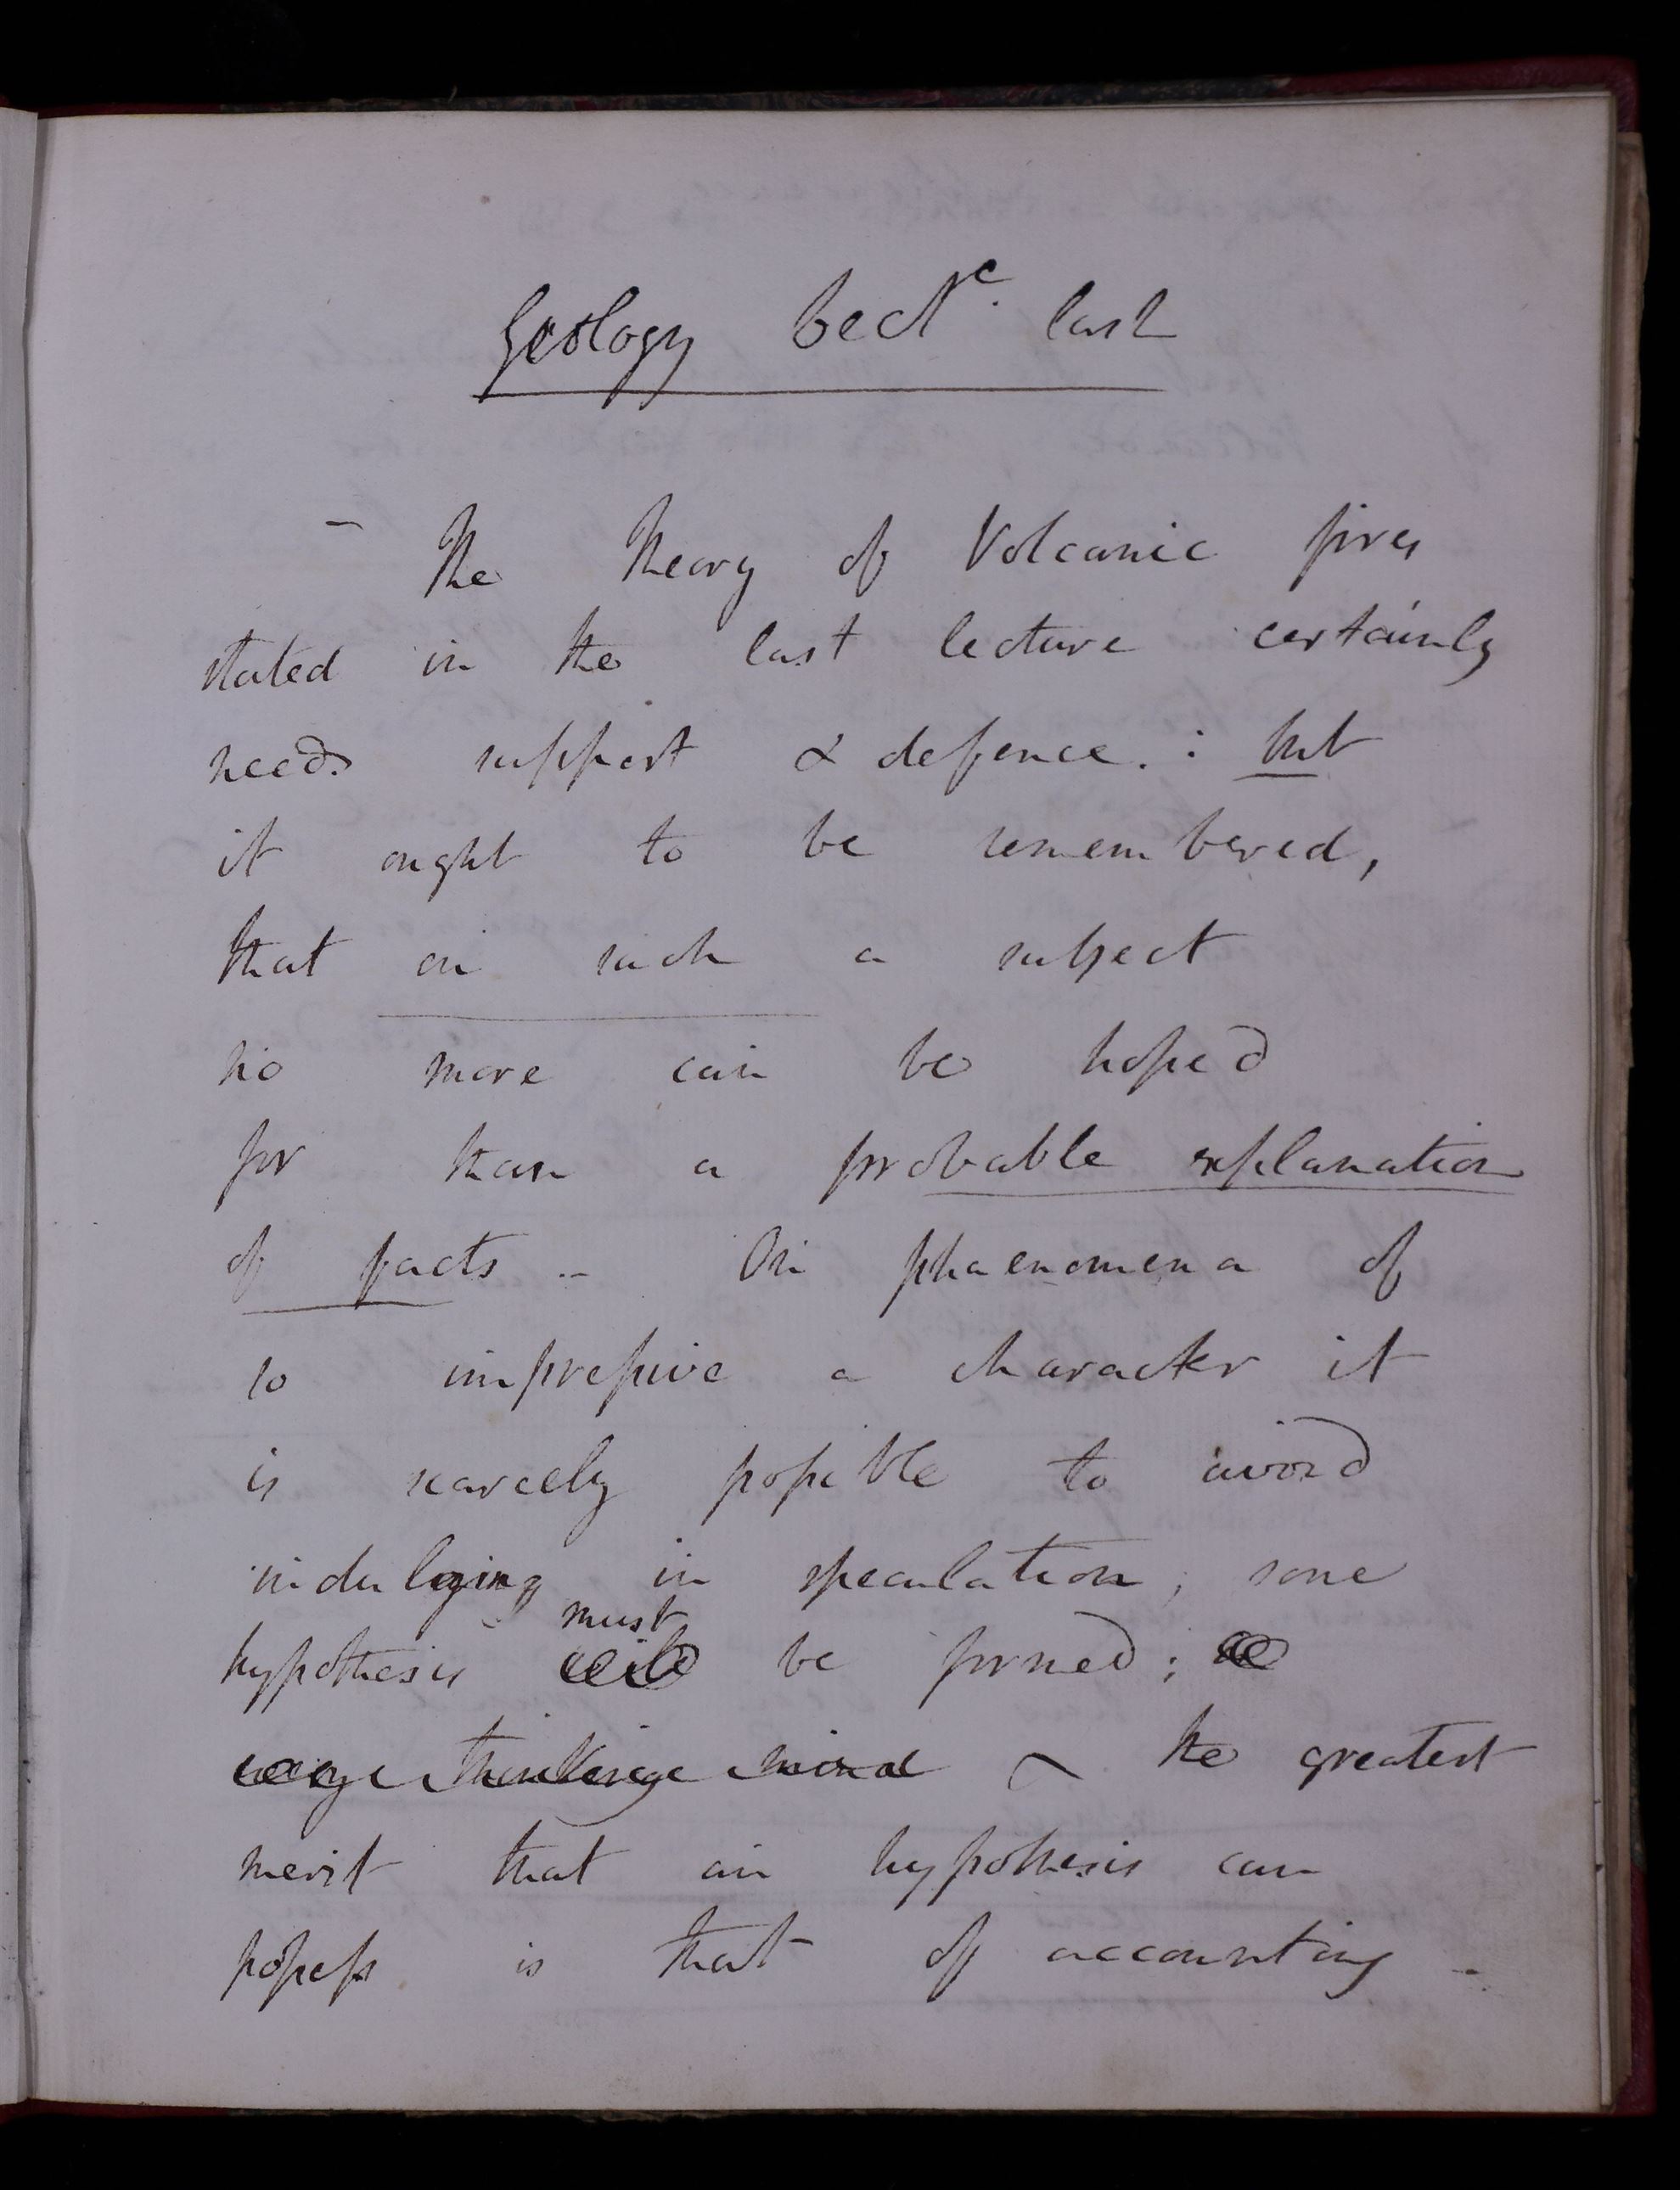 Geology Lect.e last
– The theory of Volcanic fires
stated in the last lecture certainly
needs support & defence. : but
it ought to be remembered,
that on such a subject
no more can be hoped
for than a probable explanation
of facts – On phaenomena of
so impressive a character it
is scarcely possible to avoid
indulging in speculation; some
must
hypothesis will be formed;
every thinking mind & the greatest
merit that an hypothesis can
possess is that of accounting –